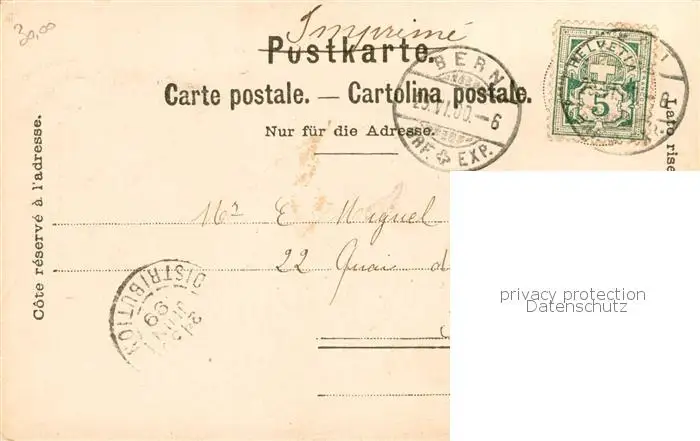 30,00
Imprimé
Postkarte.
Carte postale. — Cartolina postale.
Nur für die Adresse.
BERN
VI.00.-6
BRF. EXP.
HELVETIA
5
6
Côte réservé à l'adresse.
Lato rise
Mr E Miguel
22 Quai d
DISTRIBUTIO
24
JUIN
99
privacy protection
Datenschutz